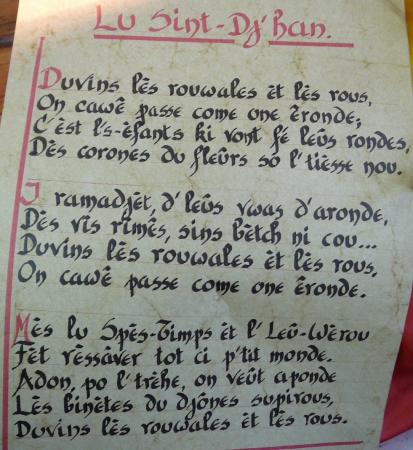 Lu Sint-Dj'han.
Duvins lès rouwales èt lès rous,
On cawê passe come one éronde;
C'èst l's-èfants ki vont fé leûs rondes,
Dès corones du fleûrs so l'tièsse nou.
I ramadjèt, d'leûs vwas d'aronde,
Dès vîs rimês, sins bètch ni cou...
Duvins lès rouwales èt lès rous,
On cawê passe come one éronde.
Mès lu Spès-Timps èt l'Leû-Wèrou
Fèt rèssâver tot ci p'tit monde.
Adon, po l'trêhe, on veût aponde
Lès binètes du djônes supirous,
Duvins lès rouwales èt lès rous.